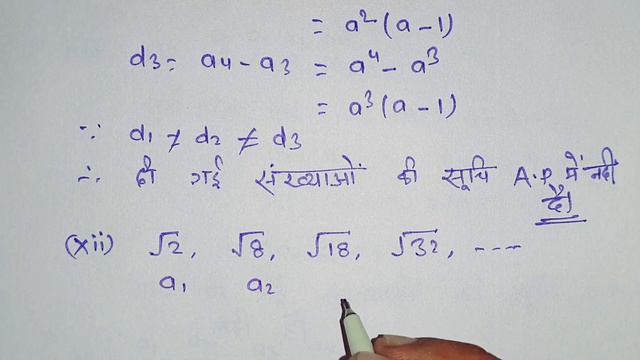 = a²(a-1)
d3 = a4 - a3 = a⁴ - a³
= a³(a-1)
∵ d1 ≠ d2 ≠ d3
∴ दी गई संख्याओं की सूचि A.P में नहीं है।
(xii) √2, √8, √18, √32, ----
a1 a2